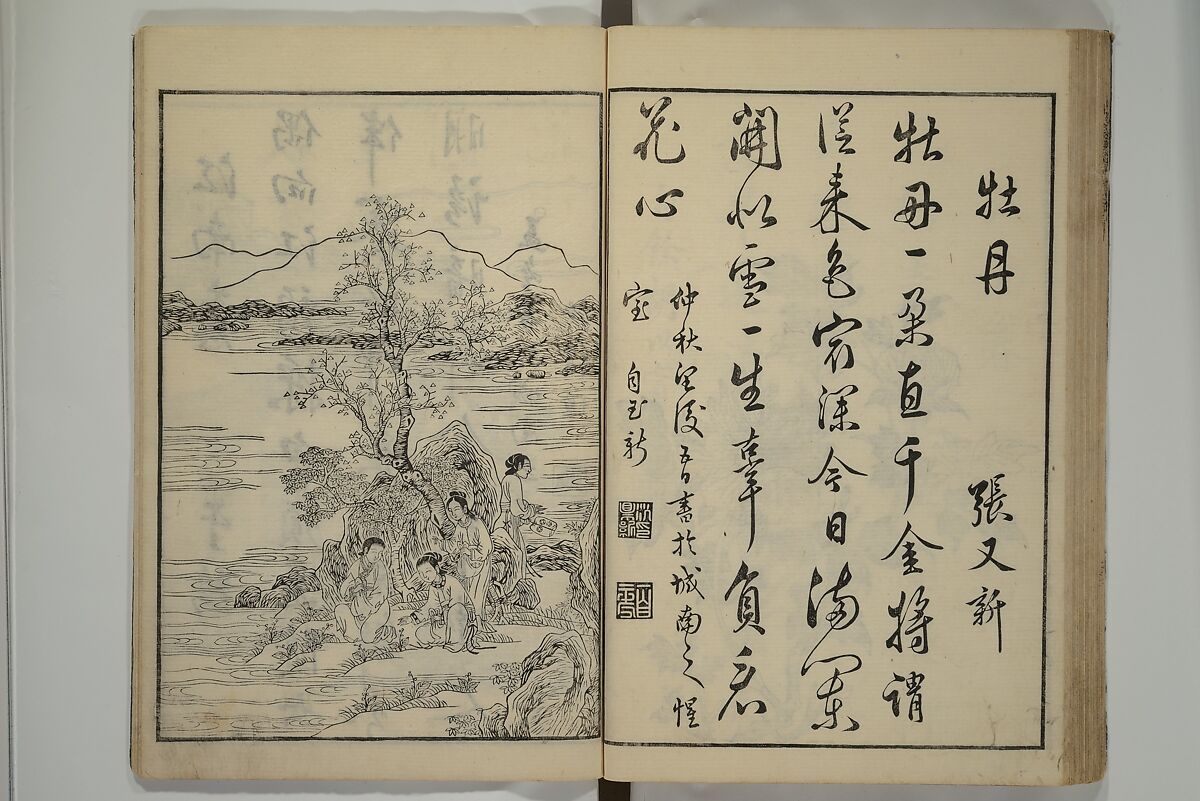 牡丹
張又新
牡丹一朵直千金將謂
從来色冣深今日滿闌
開似雪一生辜負看
花心
仲秋望後五日書於城南之惺
室 自玉新